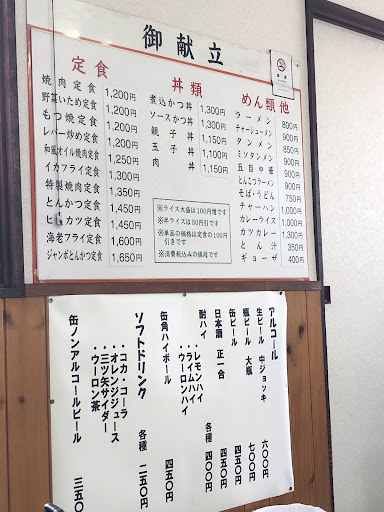 御献立
定食
焼肉定食 1,200円
野菜いため定食 1,200円
もつ焼定食 1,200円
レバー炒め定食 1,200円
和風オイル焼肉定食 1,250円
イカフライ定食 1,300円
特製焼肉定食 1,350円
とんかつ定食 1,450円
ヒレカツ定食 1,450円
海老フライ定食 1,600円
ジャンボとんかつ定食 1,650円
丼類
煮込かつ丼 1,300円
ソースかつ丼 1,300円
親子丼 1,150円
玉子丼 1,100円
肉丼 1,150円
※ライス大盛は100円増です
※半ライスは50円引です
※単品の価格は定食の100円
引きです
※消費税込みの値段です
めん類他
ラーメン 800円
チャーシューメン 900円
タンメン 850円
ミソタンメン 900円
五目中華 900円
とんこつラーメン 850円
そば・うどん 750円
チャーハン 900円
カレーライス 1,000円
カツカレー 1,300円
とん汁 350円
ギョーザ 400円
アルコール
生ビール 中ジョッキ 六〇〇円
瓶ビール 大瓶 七〇〇円
缶ビール 四五〇円
日本酒 正一合 四五〇円
酎ハイ ・レモンハイ
・ライムハイ
・ウーロンハイ 各種 四〇〇円
缶角ハイボール 四五〇円
ソフトドリンク
・コカ・コーラ
・オレンジジュース
・三ツ矢サイダー
・ウーロン茶 各種 二五〇円
缶ノンアルコールビール 三五〇円